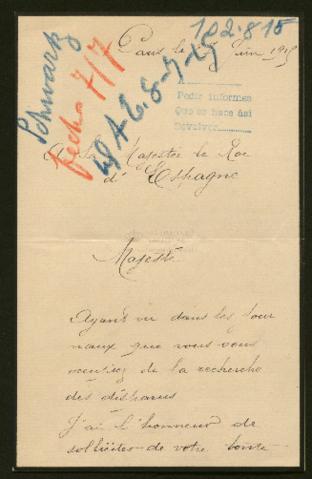 102.815
Paris le Juin 1915
Schwartz
fecha 7/7
A
Pedir informes
Que se hace así
Devolver
Sa Majesté le Roi
d'Espagne
Majesté
Ayant vu dans les jour
naux que vous vous
occupiez de la recherche
des disparus
J'ai l'honneur de
solliciter de votre bonté